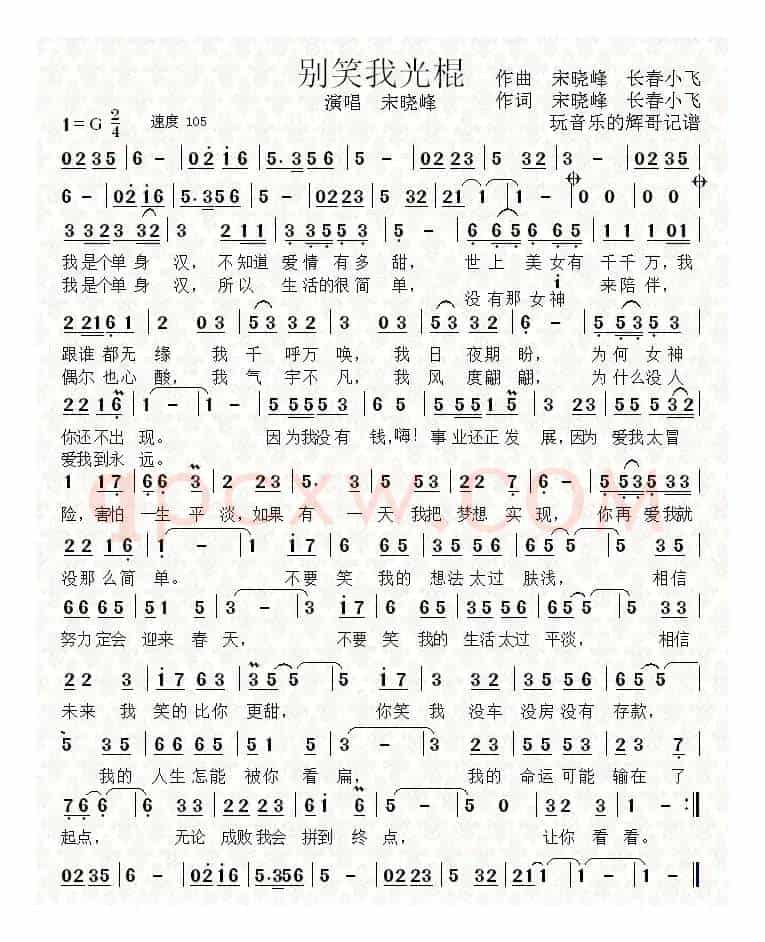 别笑我光棍
作曲 宋晓峰 长春小飞
演唱 宋晓峰
作词 宋晓峰 长春小飞
1=G 2/4 速度 105
玩音乐的辉哥记谱
0235 | 6 - | 0216 | 5.356 | 5 - | 0223 | 5 32 | 3 - | 0235 |
6 - | 0216 | 5.356 | 5 - | 0223 | 5 32 | 21 1 | 1 - | 0 0 | 0 0 |
3 323 32 | 3 211 | 3 353 | 5 - | 6 656 | 11 101 |
我是个单身 汉， 不知道 爱情 有多 甜， 世上 美女有 千千万，我
我是个单身 汉， 所以 生活的很简 单， 没有那 女神 来陪伴，
2 2161 | 2 03 | 53 32 | 3 03 | 52 32 | 5 - | 5 5535 |
跟谁 都无 缘 我 千 呼万 唤， 我 日 夜期 盼， 为何 女神
偶尔 也心 酸， 我 气 宇不 凡， 我 风 度翩 翩， 为什么没人
22 16 | 1 - | 1 - | 5 5553 | 6 5 | 5 5515 | 3 23 | 5 5532 |
你还不出 现。 因为我没有 钱,嗨! 事业还正发 展,因为 爱我太冒
爱我到永 远。
1 17 | 66 3 | 23 5 | 3 - | 3 23 | 5 65 | 6 - | 5 53533 |
险，害怕 一生 平 淡,如果 有 一 天 我把 梦想 实 现， 你 再 爱我就
qpcxw.COM
22 16 | 1 - | 1 - | 1 17 | 6 65 | 35 65 | 35 5 | 5 35 |
没那么简 单。 不要 笑 我的 想法太过 肤浅， 相信
66 65 | 51 5 | 3 - | 3 - | 3 17 | 6 65 | 35 65 | 35 5 | 5 35 |
努力定会 迎来 春 天， 不要 笑 我的 生活太过 平淡， 相信
2 2 3 | 17 63 | 35 5 | 5 17 | 6 3 | 2 23 | 55 35 | 35 5 |
未来 我 笑的 比你 更甜， 你笑 我 没车 没房没有 存款，
5 35 | 6 665 | 51 5 | 3 - | 3 23 | 5 35 | 23 7 |
我的 人生 怎能 被你 看 扁， 我的 命运可能 输在 了
766 | 6 33 | 2223 | 61 6 | 5 - | 5 0 | 3 32 | 1 - :||
起点， 无论 成败我会 拼到 终 点， 让你 看 看。
0235 | 6 - | 0216 | 5.356 | 5 - | 0223 | 5 32 | 21 1 | 1 - ||